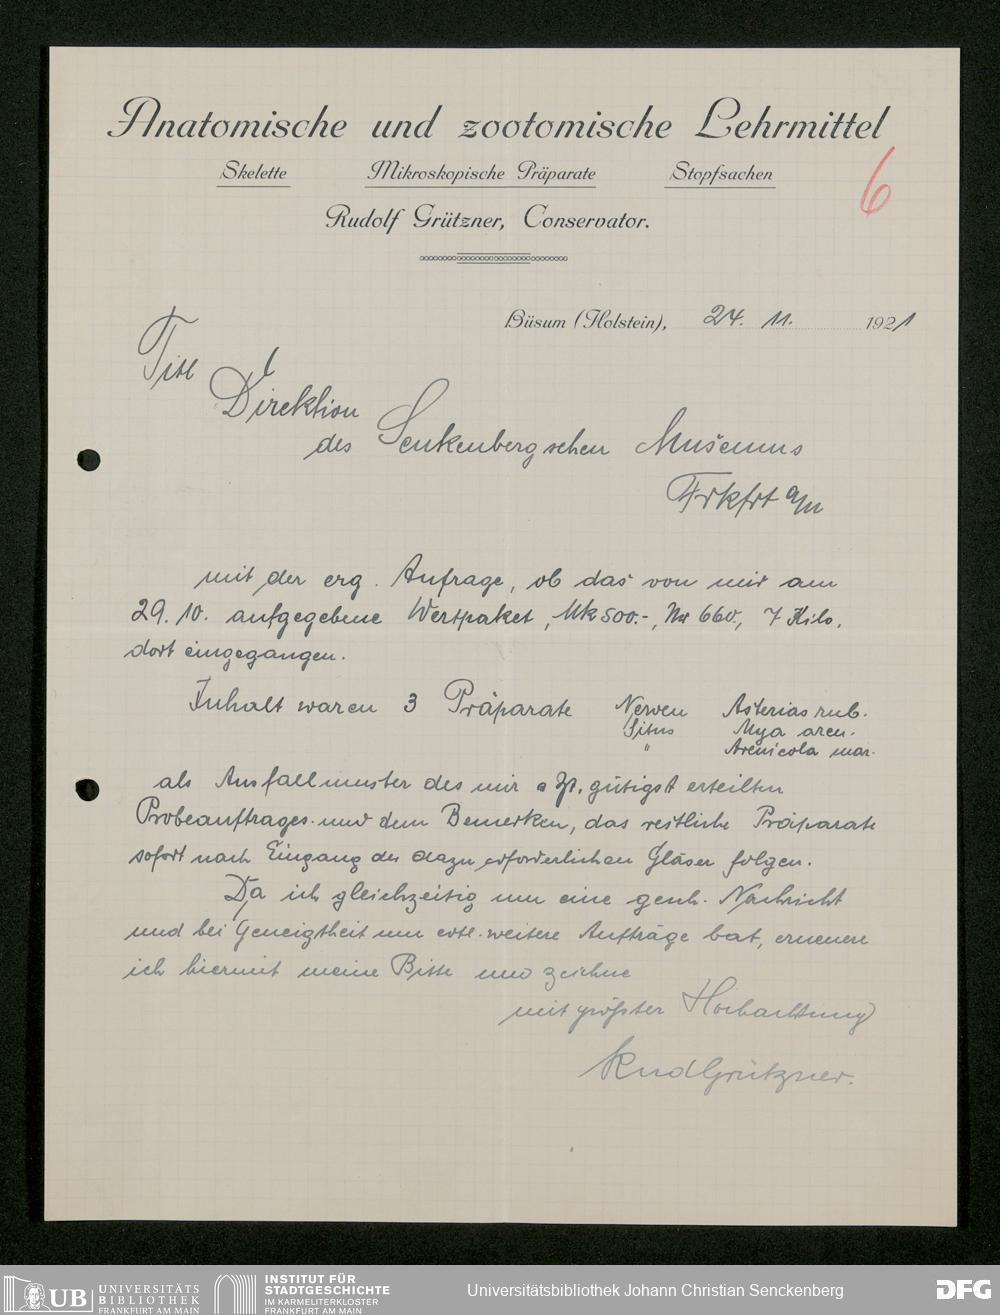 Anatomische und zootomische Lehrmittel
Skelette Mikroskopische Präparate Stopfsachen
6
Rudolf Grützner, Conservator.
Büsum (Holstein), 24. 11. 1921
Titl
Direktion
des Senkenbergschen Museums
Frkfrt a/M
mit der erg. Anfrage, ob das von mir am
29. 10. aufgegebene Wertpaket, Mk 500.-, Nr 660, 7 Kilo,
dort eingegangen.
Inhalt waren 3 Präparate Nerven Asterias rub.
Situs Mya aren.
" Arenicola mar.
als Ausfallmuster des mir s. Zt. gütigst erteilten
Probeauftrages und dem Bemerken, das restliche Präparate
sofort nach Eingang der dazu erforderlichen Gläser folgen.
Da ich gleichzeitig um eine gesch. Nachricht
und bei Geneigtheit um evtl. weitere Aufträge bat, erneuere
ich hiermit meine Bitte und zeichne
mit größter Hochachtung
Rud Grützner.
UB UNIVERSITÄTS
BIBLIOTHEK
FRANKFURT AM MAIN
INSTITUT FÜR
STADTGESCHICHTE
IM KARMELITERKLOSTER
FRANKFURT AM MAIN
Universitätsbibliothek Johann Christian Senckenberg
DFG